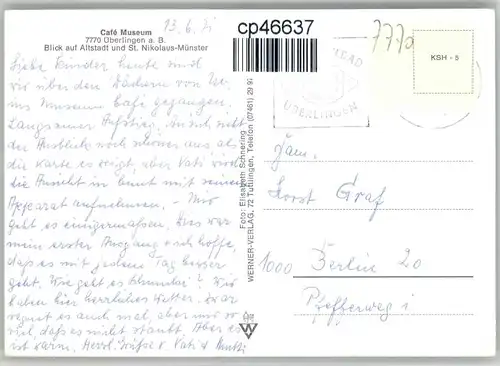 Café Museum
7770 Überlingen a. B.
Blick auf Altstadt und St. Nikolaus-Münster
13.6.71
cp46637
7770
KSH - 5
BAD
ÜBERLINGEN
Liebe Kinder heute sind
wir über den von
ins Museum Café gegangen.
Langsamer Aufstieg. An sich ist
der Ausblick noch schöner als
die Karte es zeigt, aber Vati wird
die Ansicht in bunt mit seinem
Apparat aufnehmen. - Mir
geht es einigermaßen. Dies war
mein erster Ausgang u. ich hoffe,
daß es mit jedem Tag besser
geht. Wie geht es ? Wir
haben hier herrliches Wetter. Zwar
regnet es auch mal, aber nur so
viel daß es nicht staubt. Aber es
ist warm. Herzl. Grüße v. Vati u. Mutti
Foto: Elisabeth Schnerring
WERNER-VERLAG, 72 Tuttlingen, Telefon (07461) 29 9
W
Fam.
Horst Graf
1000 Berlin 20
Pfefferweg 1